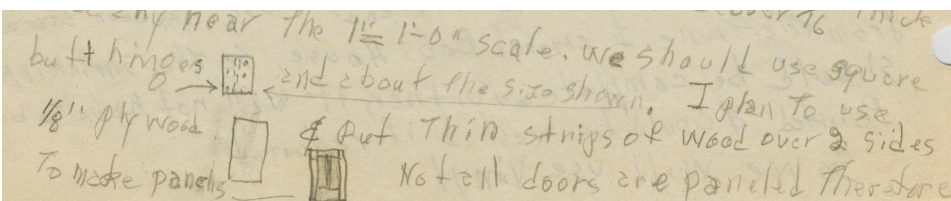 near the 1"= 1'-0" scale. We should use square
butt hinges and about the size shown. I plan to use
1/8" plywood & put thin strips of wood over 2 sides
To make panels Not all doors are paneled Therefore